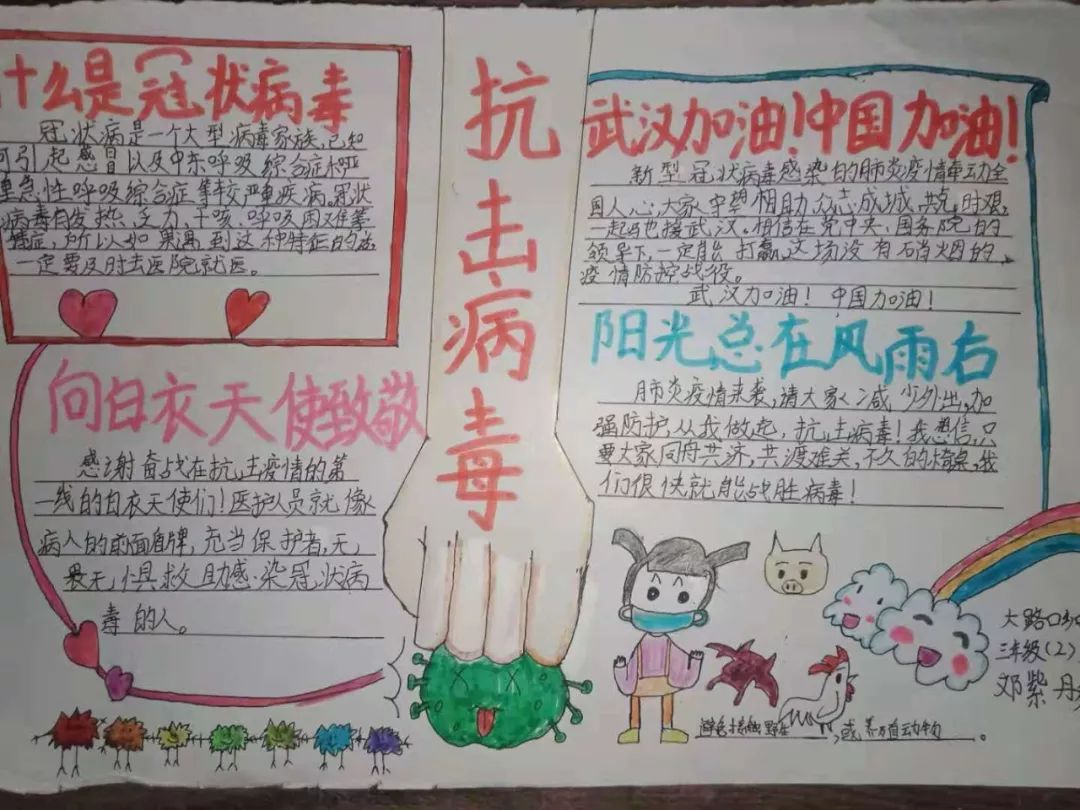 什么是冠状病毒
冠状病是一个大型病毒家族,已知
可引起感冒以及中东呼吸综合症和严
重急性呼吸综合症等较严重疾病。冠状
病毒有发热、乏力、干咳、呼吸困难等
情症,所以如果遇到这种特征的
一定要及时去医院就医。
向白衣天使致敬
感谢奋战在抗击疫情的第
一线的白衣天使们!医护人员就像
病人的前面盾牌,充当保护者,无
畏无惧救助感染冠状病
毒的人。
抗击病毒
武汉加油!中国加油!
新型冠状病毒感染的肺炎疫情牵动全
国人心,大家守望相助众志成城,共克时艰,
一起驰援武汉。相信在党中央、国务院的
领导下,一定能打赢这场没有硝烟的
疫情防控战役。
武汉加油!中国加油!
阳光总在风雨右
肺炎疫情来袭,请大家减少外出,加
强防护从我做起,抗击病毒!我想信,只
要大家同舟共济,共渡难关,不久的将来,我
们很快就能战胜病毒!
避免接触野生
,或养殖动物。
大路口
三年级(2)
邓紫丹